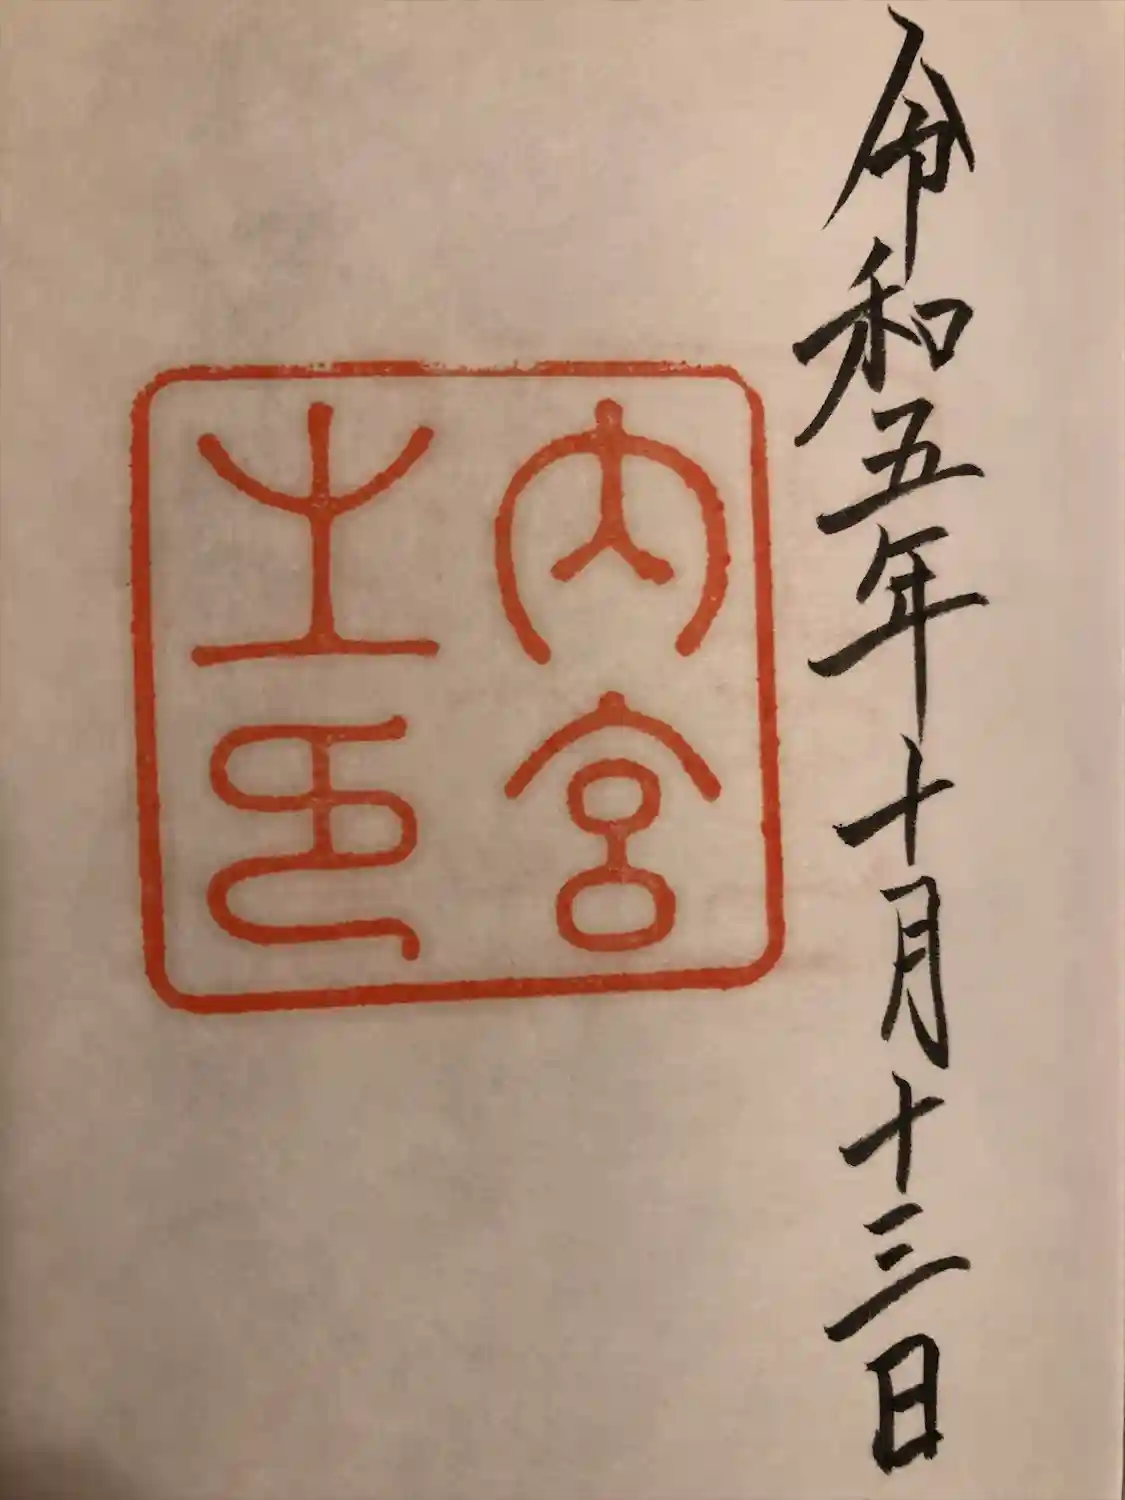 令和五年十月十三日
内宮
之印